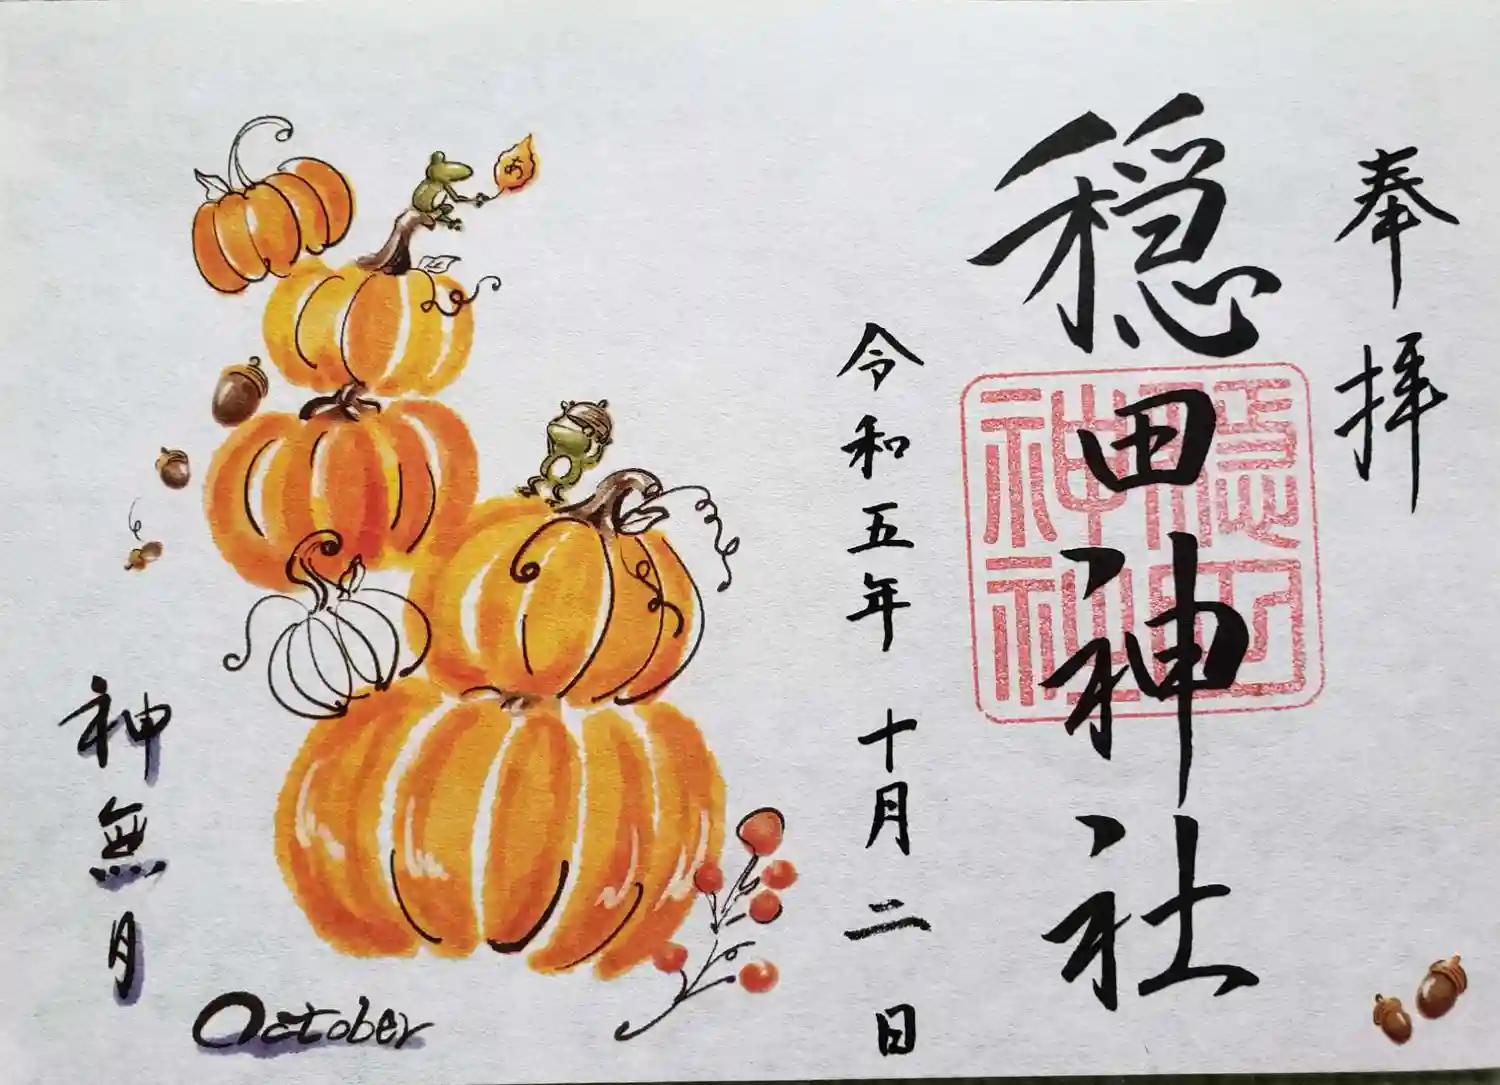 奉拝
穏田神社
穏田
神社
令和五年 十月二日
神無月
October
め